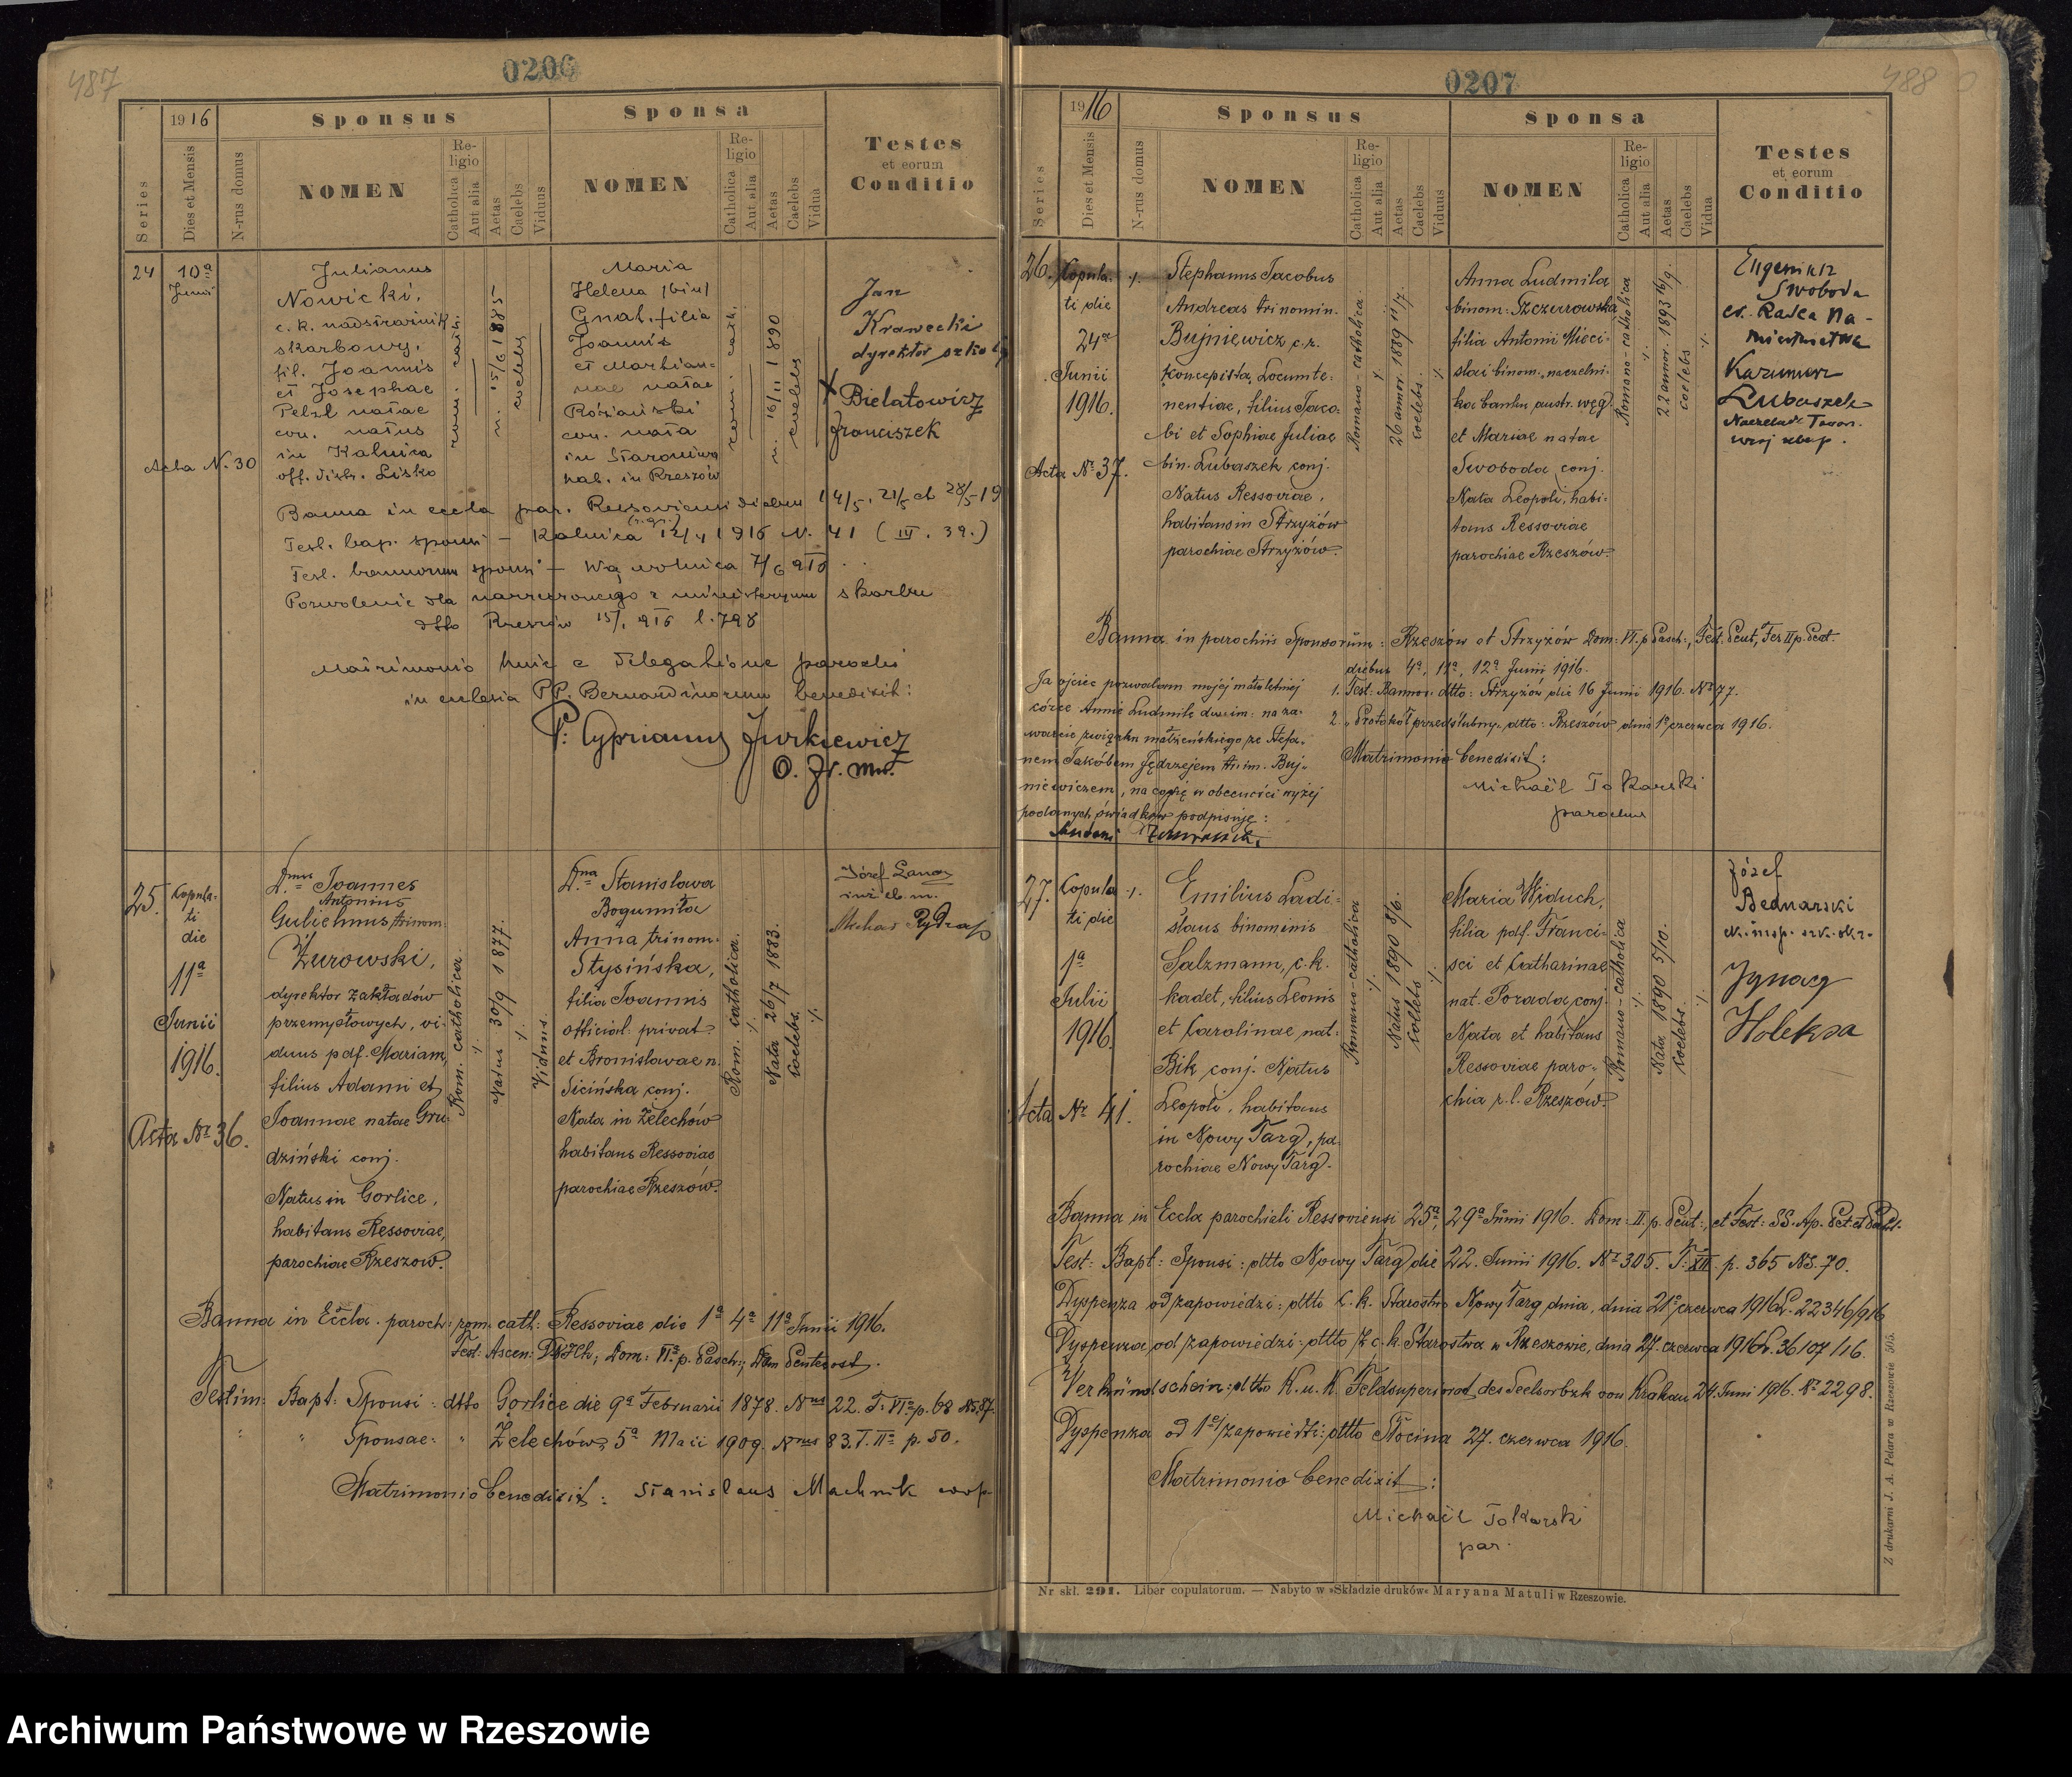 487
0206
1916
Sponsus
Sponsa
Testes
et eorum
Conditio
Series
Dies et Mensis
N-rus domus
NOMEN
Religio
Catholica
Aut alia
Aetas
Caelebs
Viduus
NOMEN
Religio
Catholica
Aut alia
Aetas
Caelebs
Vidua
24
10ª
Junii
Acta N. 30
Julianus
Nowicki,
c. k. nadstrażnik
skarbowy,
fil. Joannis
et Josephae
Pelzl natae
con. natus
in Kalnica
off. distr. Lisko
rom. cath.
n. 15/6 1885
coelebs
Maria
Helena (bin)
Gnat. filia
Joannis
et Marhian=
nae natae
Róziański
con. nata
in Staroniwa
hab. in Rzeszów
rom. cath.
n. 16/11 1890
coelebs
Jan
Krawecki
dyrektor szkoły
Bielatowicz
Franciszek
Banna in eccla par. Ressoviensi diebus 14/5, 21/5 et 28/5 19
Test. bap. sponsi — Kalnica 12/4 1916 N. 41 (III. 39.)
Test. bannorum sponsi — Wą wolnica 7/6 916
Pozwolenie dla narzeczonego z ministeryum skarbu
dtto Rzeszów 15/1 916 l. 798
Matrimonio huic e delegatione parochi
in ecclesia PP. Bernardinorum benedixit:
P. Cyprianus Jurkiewicz
O. Fr. Min.
25.
Copula-
ti
die
11ª
Junii
1916.
Acta Nr 36.
Dnus Joannes
Antonius
Gulielmus trinom.
Żurowski,
dyrektor zakładów
przemysłowych, vi-
duus p df. Mariam,
filius Adami et
Joannae natae Gru-
dziński conj.
Natus in Gorlice,
habitans Ressoviae,
parochiae Rzeszow.
Rom. catholica
Natus 30/9 1877.
Viduus.
Dna Stanislava
Bogumiła
Anna trinom.
Stysińska,
filia Joannis
official. privat
et Bronislavae n.
Sicińska conj.
Nata in Żelechów
habitans Ressoviae
parochiae Rzeszów.
Rom. catholica.
Nata 26/7 1883.
Coelebs.
Józef
inż. cb. m.
Banna in Eccla. paroch. rom. cath: Ressoviae die 1ª 4ª 11ª Junii 1916.
Fest: Ascen: DJCh; Dom: VIª p. Pasch:; Dom Pentecost.
Testim: Bapt: Sponsi: dtto Gorlice die 9ª Februarii 1878. Nrus 22. T. VIª p. 68 Ns. 87.
" " Sponsae: " Żelechów, 5ª Maii 1909. Nrus 83. T. IIª p. 50.
Matrimonio benedixit: Stanislaus Machnik coop.
488
0207
1916
Sponsus
Sponsa
Testes
et eorum
Conditio
Series
Dies et Mensis
N-rus domus
NOMEN
Religio
Catholica
Aut alia
Aetas
Caelebs
Viduus
NOMEN
Religio
Catholica
Aut alia
Aetas
Caelebs
Vidua
26.
Copula-
ti die
24ª
Junii
1916.
Acta Nr 37.
Stephanus Jacobus
Andreas trinomin.
Bujniewicz c. k.
koncepista, Locumte=
nentiae, filius Jaco=
bi et Sophiae Juliae
bin. Lubaszek conj.
Natus Ressoviae,
habitans in Strzyżów
parochiae Strzyżów.
Romano-catholica.
26 annor. 1889 11/7.
Coelebs.
Anna Ludmila
binom: Szczurowska
filia Antonii Mieci=
slai binom., naczelni-
ka banku austr. węg.
et Mariae natae
Swoboda conj.
Nata Leopoli, habi=
tans Ressoviae
parochiae Rzeszów.
Romano-catholica
22 annor. 1893 16/9.
Coelebs
Eugeniusz
Swoboda
ck. Radca Na-
miestnictwa
Kazimierz
Lubaszek
Banna in parochiis Sponsorum: Rzeszów et Strzyżów Dom: VI. p Pasch:, Fest: Pent, Fer II p. Pent.
diebus 4ª, 11ª, 12ª Junii 1916.
1. Test: Bannor: dtto: Strzyżów die 16 Junii 1916. Nr 77.
2. „Protokół przedślubny„ dtto: Rzeszów dnia 1º czerwca 1916.
Ja ojciec pozwalam mojej małoletniej
córce Annie Ludmile dwuim: na za-
warcie związku małżeńskiego ze Stefa-
nem Jakóbem Jędrzejem tri im. Buj-
niewiczem, na co się w obecności wyżej
podanych świadków podpisuję:
Matrimonio benedixit:
Michaël Tokarski
parochus
27.
Copula-
ti die
1ª
Julii
1916.
Acta Nr 41.
Emilius Ladi=
slaus binominis
Salzmann, c. k.
kadet, filius Leonis
et Carolinae nat.
Bik conj. Natus
Leopoli, habitans
in Nowy Targ, pa-
rochiae Nowy Targ.
Romano-catholica
Natus 1890 8/6.
Coelebs
Maria Widuch,
filia pdf. Franci=
sci et Catharinae
nat. Porada conj.
Nata et habitans
Ressoviae paro-
chia r. l. Rzeszów.
Romano-catholica
Nata 1890 5/10.
Coelebs.
Józef
Bednarski
ck. insp. szk. okr.
Ignacy
Holeksa
Banna in Eccla parochiali Ressoviensi 25ª, 29ª Junii 1916. Dom: II. p. Pent:, et Fest: SS. Ap. Pet. et Pauli.
Test: Bapt: Sponsi: dtto Nowy Targ die 22. Junii 1916. Nr 305. T. XII p. 365 Ns. 70.
Dyspenza od zapowiedzi: dtto C. k. Starostwo Nowy Targ dnia, dnia 21º czerwca 1916 L. 22346/916
Dyspenza od zapowiedzi: dtto z c. k. Starostwa w Rzeszowie, dnia 27. czerwca 1916 L. 36107/16.
Verkündschein: dtto K. u. K. Feldsuperiorat des Seelsorbzk von Krakau 24. Juni 1916. Nr 2298.
Dyspenza od 1ej zapowiedzi: dtto Słocina 27. czerwca 1916.
Matrimonio benedixit:
Michaël Tokarski
par.
Z drukarni J. A. Pelara w Rzeszowie 505.
Nr skł. 291. Liber copulatorum. — Nabyto w »Składzie druków« Maryana Matuli w Rzeszowie.
Archiwum Państwowe w Rzeszowie